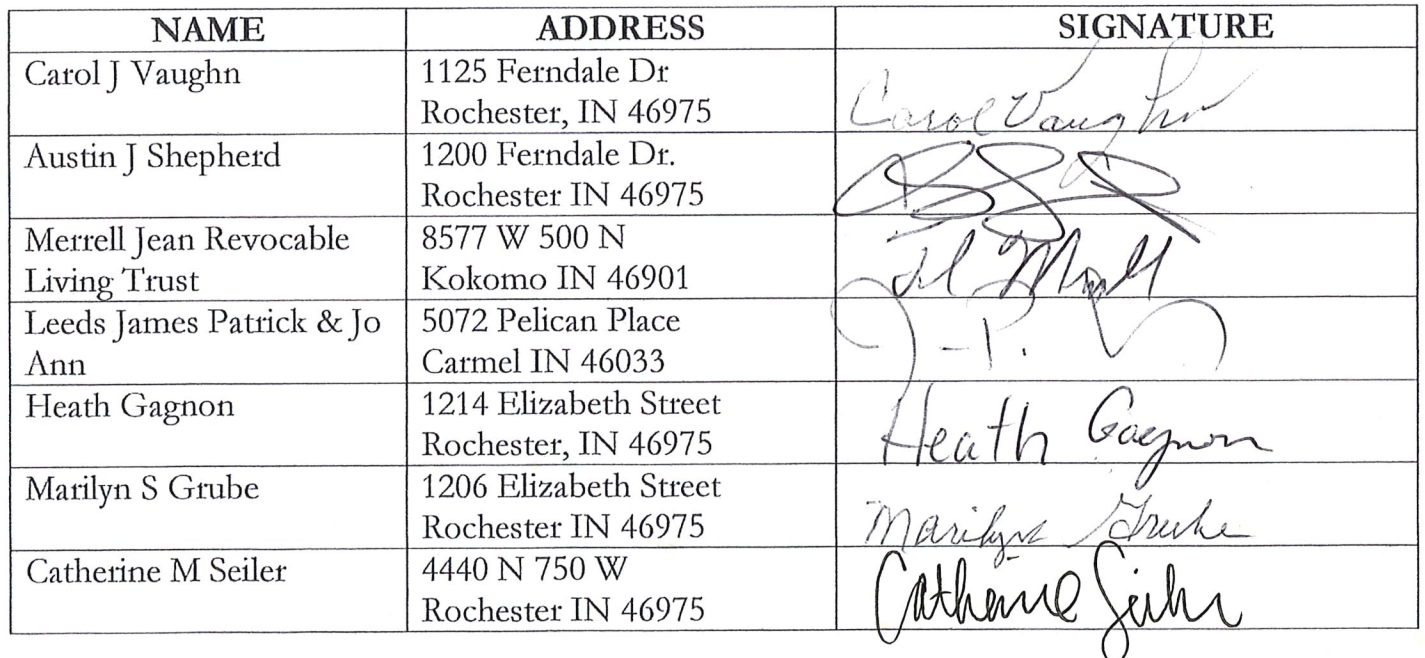 NAME ADDRESS SIGNATURE
Carol J Vaughn 1125 Ferndale Dr
Rochester, IN 46975 Carol Vaughn
Austin J Shepherd 1200 Ferndale Dr.
Rochester IN 46975
Merrell Jean Revocable 8577 W 500 N
Living Trust Kokomo IN 46901
Leeds James Patrick & Jo 5072 Pelican Place
Ann Carmel IN 46033
Heath Gagnon 1214 Elizabeth Street
Rochester, IN 46975 Heath Gagnon
Marilyn S Grube 1206 Elizabeth Street
Rochester IN 46975 Marilyn Grube
Catherine M Seiler 4440 N 750 W
Rochester IN 46975 Catherine Seiler